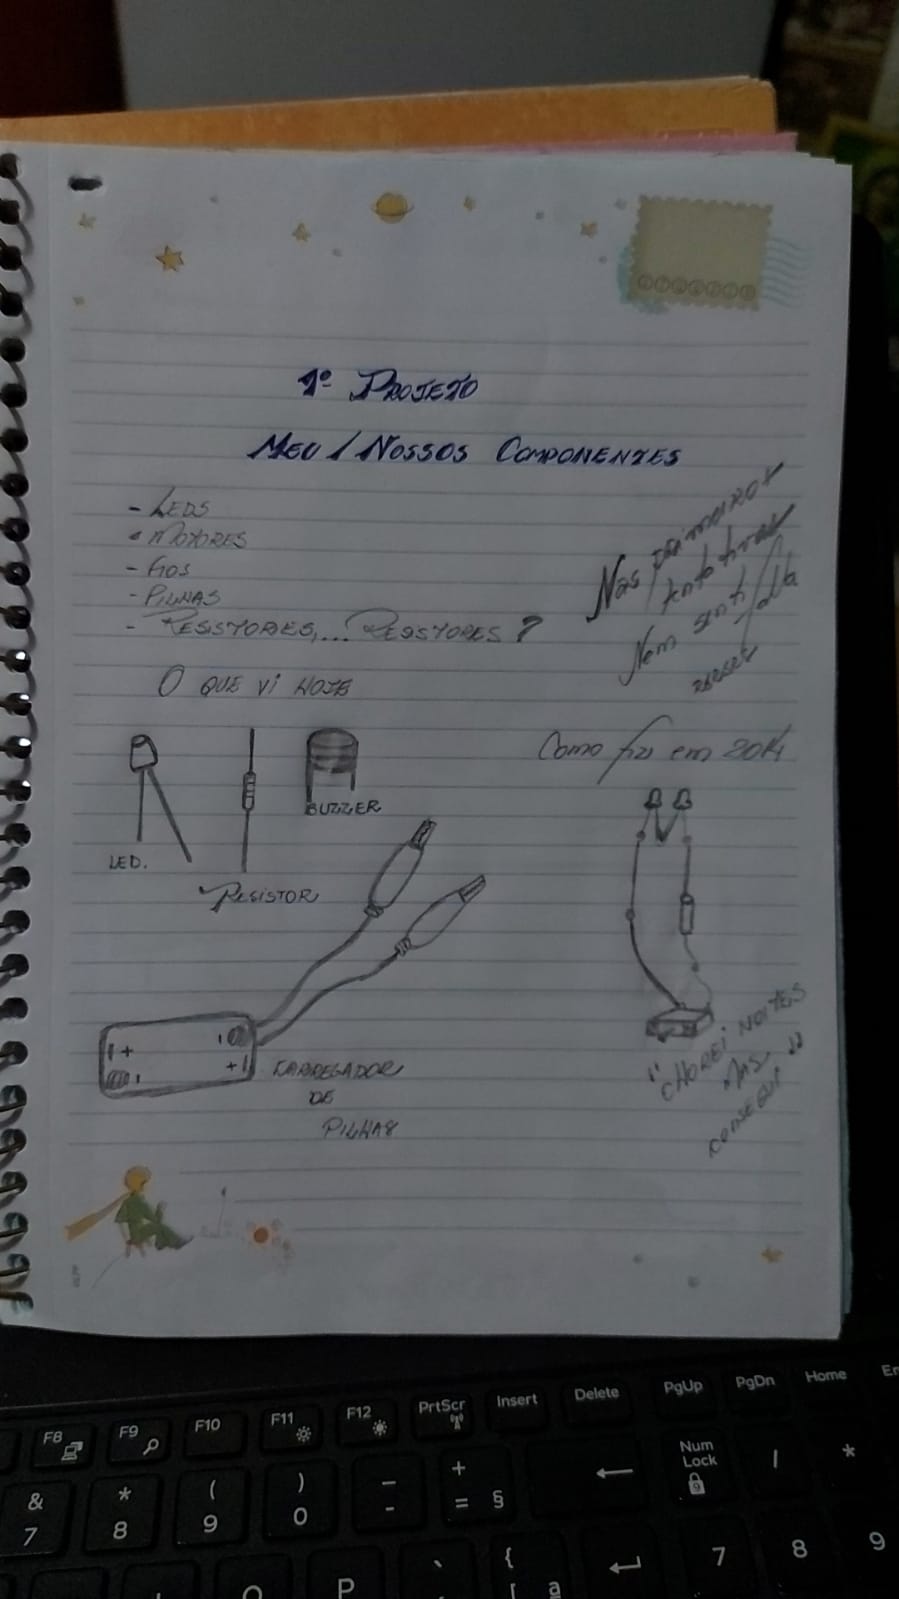 1º PROJETO
MEU / NOSSOS COMPONENTES
- LEDS
- MOTORES
- FIOS
- PILHAS
- RESISTORES,... RESISTORES ?
Nas primeiras
tentativas
Nem senti falta
O QUE VI HOJE
Como fiz em 2014
LED.
RESISTOR
BUZZER
CARREGADOR
DE
PILHAS
"CHOREI NOITES
MAS
CONSEGUI"
F8
F9
F10
F11
F12
PrtScr
Insert
Delete
PgUp
PgDn
Home
&
7
*
8
(
9
)
0
-
-
+
= §
Num
Lock
/
*
7
8
9
O
P
`
{
[ ª